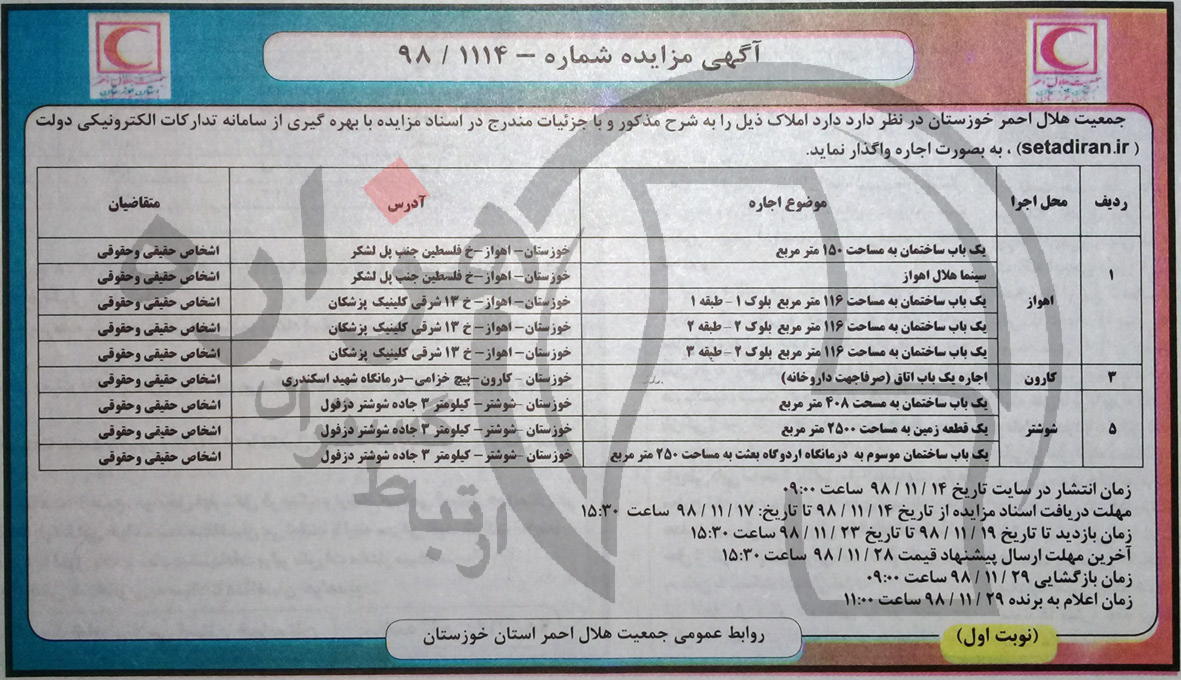 آگهی مزایده شماره – ۱۱۱۴ / ۹۸
جمعیت هلال احمر
استان خوزستان
جمعیت هلال احمر
استان خوزستان
جمعیت هلال احمر خوزستان در نظر دارد دارد املاک ذیل را به شرح مذکور و با جزئیات مندرج در اسناد مزایده با بهره گیری از سامانه تدارکات الکترونیکی دولت
( setadiran.ir) ، به بصورت اجاره واگذار نماید.
ردیف محل اجرا موضوع اجاره آدرس متقاضیان
یک باب ساختمان به مساحت ۱۵۰ متر مربع خوزستان– اهواز–خ فلسطین جنب پل لشگر اشخاص حقیقی وحقوقی
سینما هلال اهواز خوزستان– اهواز–خ فلسطین جنب پل لشگر اشخاص حقیقی وحقوقی
۱ اهواز یک باب ساختمان به مساحت ۱۱۶ متر مربع بلوک ۱ – طبقه ۱ خوزستان– اهواز– خ ۱۳ شرقی کلینیک پزشکان اشخاص حقیقی وحقوقی
یک باب ساختمان به مساحت ۱۱۶ متر مربع بلوک ۲ – طبقه ۲ خوزستان– اهواز– خ ۱۳ شرقی کلینیک پزشکان اشخاص حقیقی وحقوقی
یک باب ساختمان به مساحت ۱۱۶ متر مربع بلوک ۲ – طبقه ۳ خوزستان– اهواز– خ ۱۳ شرقی کلینیک پزشکان اشخاص حقیقی وحقوقی
۳ کارون اجاره یک باب اتاق (صرفاجهت داروخانه) خوزستان – کارون–پیچ خزامی–درمانگاه شهید اسکندری اشخاص حقیقی وحقوقی
یک باب ساختمان به مسحت ۴۰۸ متر مربع خوزستان –شوشتر– کیلومتر ۳ جاده شوشتر دزفول اشخاص حقیقی وحقوقی
۵ شوشتر یک قطعه زمین به مساحت ۲۵۰۰ متر مربع خوزستان –شوشتر– کیلومتر ۳ جاده شوشتر دزفول اشخاص حقیقی وحقوقی
یک باب ساختمان موسوم به درمانگاه اردوگاه بعثت به مساحت ۲۵۰ متر مربع خوزستان –شوشتر– کیلومتر ۳ جاده شوشتر دزفول اشخاص حقیقی وحقوقی
زمان انتشار در سایت تاریخ ۱۴ / ۱۱ / ۹۸ ساعت ۰۹:۰۰
مهلت دریافت اسناد مزایده از تاریخ ۱۴ / ۱۱ / ۹۸ تا تاریخ: ۱۷ / ۱۱ / ۹۸ ساعت ۱۵:۳۰
زمان بازدید تا تاریخ ۱۹ / ۱۱ / ۹۸ تا تاریخ ۲۳ / ۱۱ / ۹۸ ساعت ۱۵:۳۰
آخرین مهلت ارسال پیشنهاد قیمت ۲۸ / ۱۱ / ۹۸ ساعت ۱۵:۳۰
زمان بازگشایی ۲۹ / ۱۱ / ۹۸ ساعت ۰۹:۰۰
زمان اعلام به برنده ۲۹ / ۱۱ / ۹۸ ساعت ۱۱:۰۰
(نوبت اول)
روابط عمومی جمعیت هلال احمر استان خوزستان